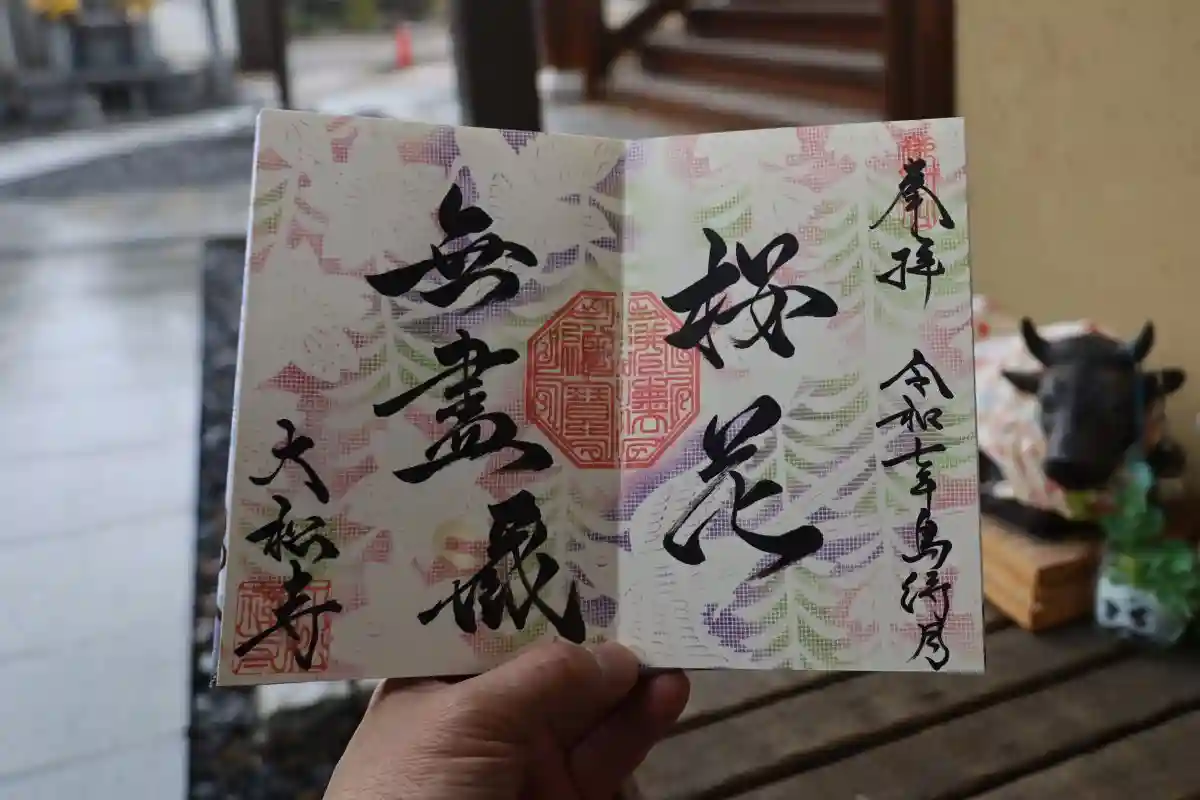 奉拝
令和七年鳥待月
桜花
無盡蔵
大松寺